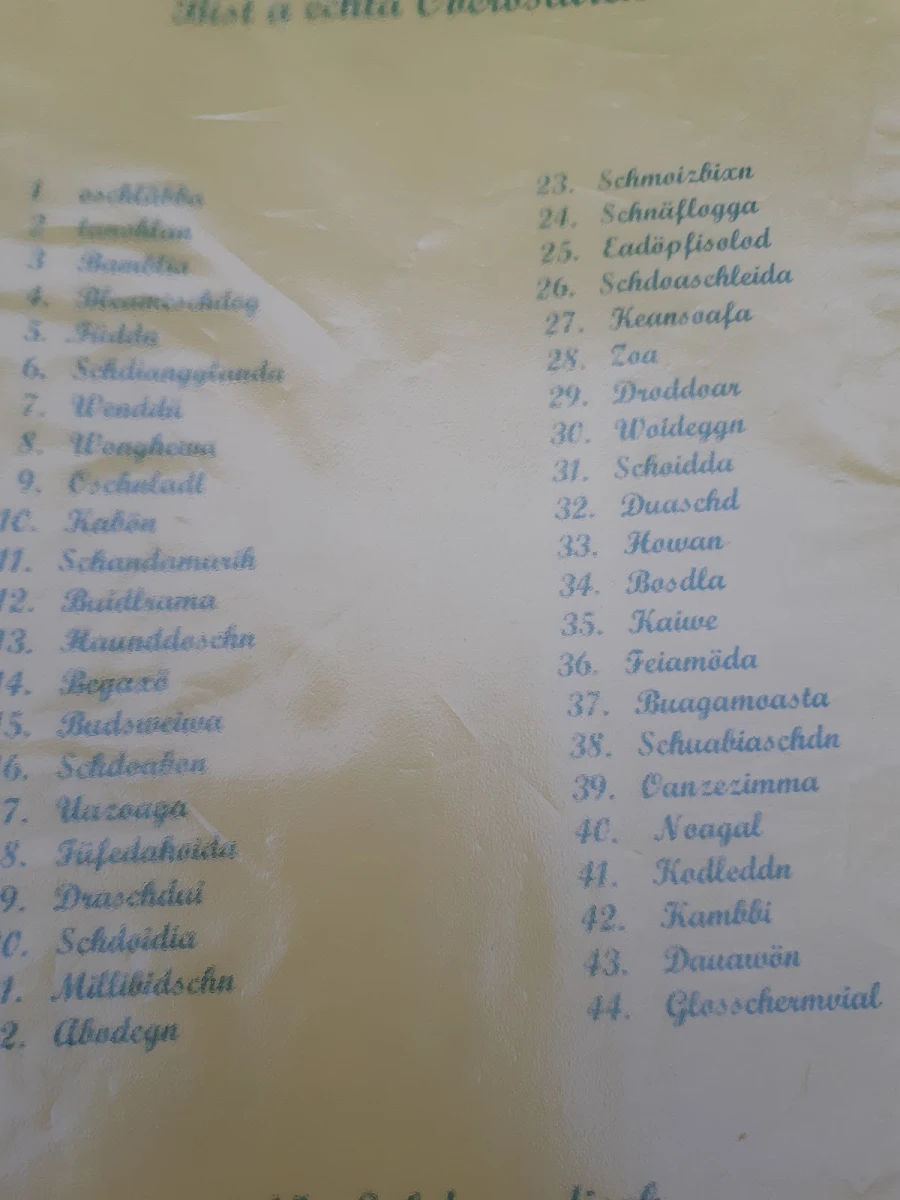 Bist a echta
1 oschlabba
2
3 Bamblia
4. Bleameschdog
5. Füddn
6. Schdiangglanda
7. Wendda
8. Wongheiwa
9. Oschnladl
10. Kabön
11. Schandamarih
12. Buidlrama
13. Haunddoschn
14. Begaxö
15. Budsweiwa
6. Schdoabon
7. Uazoaga
8. Füfedahoida
9. Draschdui
0. Schdoidia
1. Millibidschn
2. Abodegn
23. Schmoizbixn
24. Schnäflogga
25. Eadöpfisolod
26. Schdoaschleida
27. Keansoafa
28. Zoa
29. Droddoar
30. Woideggn
31. Schoidda
32. Duaschd
33. Howan
34. Bosdla
35. Kaiwe
36. Feiamöda
37. Buagamoasta
38. Schuabiaschdn
39. Oanzezimma
40. Noagal
41. Kodleddn
42. Kambbi
43. Dauawön
44. Glosschermvial